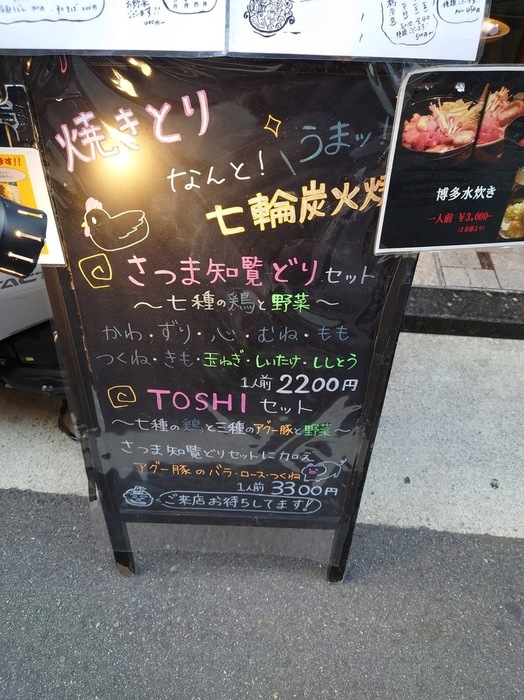 お野菜
焼きとり
うまッ!
なんと!
七輪炭火焼
さつま知覧どりセット
～七種の鶏と野菜～
かわ・ずり・心・むね・もも
つくね・きも・玉ねぎ・しいたけ・ししとう
1人前 2200円
TOSHI セット
～七種の鶏と三種のアグー豚と野菜～
さつま知覧どりセットに加え
アグー豚のバラ・ロース・つくね
1人前 3300円
ご来店お待ちしてます!
博多水炊き
一人前 ¥3,000-
(2名様より)
ます!!